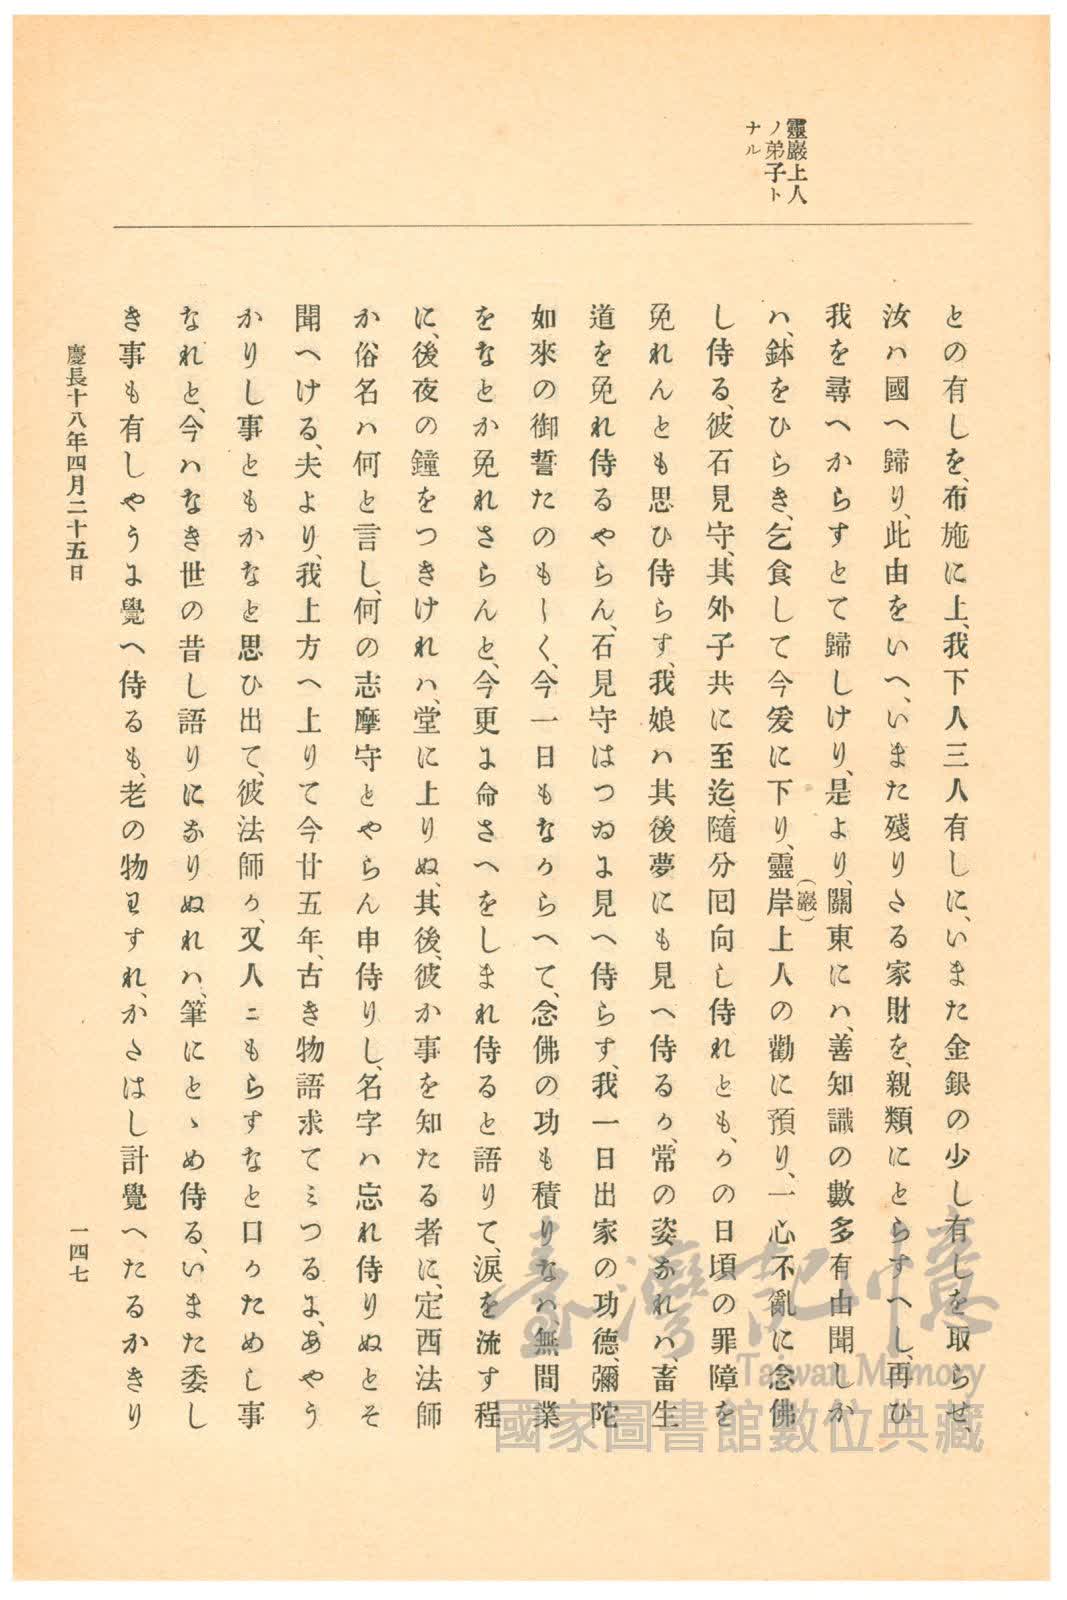 靈巖上人
ノ弟子ト
ナル
との有しを、布施に上、我下人三人有しに、いまた金銀の少し有しを取らせ、
汝ハ國へ歸り、此由をいへ、いまた殘りさる家財を、親類にとらすへし、再ひ
我を尋へからすとて歸しけり、是より、關東にハ、善知識の數多有由聞しか
ハ、鉢をひらき、乞食して今爰に下り、靈岸上人の勸に預り、一心不亂に念佛
(巖)
し侍る、彼石見守、其外子共に至迄、隨分囘向し侍れとも、かの日頃の罪障を
免れんとも思ひ侍らす、我娘ハ其後夢にも見へ侍るか、常の姿なれハ、畜生
道を免れ侍るやらん、石見守はつゐよ見へ侍らす、我一日出家の功德、彌陀
如來の御誓たのもしく、今一日もなからへて、念佛の功も積りなハ、無間業
をなとか免れさらんと、今更よ命さへをしまれ侍ると語りて、淚を流す程
に、後夜の鐘をつきけれハ、堂に上りぬ、其後、彼か事を知たる者に、定西法師
か、俗名ハ何と言し、何の志摩守とやらん申侍りし、名字ハ忘れ侍りぬとそ
聞へける、夫より、我上方へ上りて今廿五年、古き物語求てミつるよ、あやう
かりし事ともかなと思ひ出て、彼法師か、又人ニもらすなと口かためし事
なれと、今ハなき世の昔し語りになりぬれハ、筆にとゝめ侍る、いまた委し
き事も有しやうよ覺へ侍るも、老の物わすれ、かさはし計覺へたるかきり
慶長十八年四月二十五日
一四七
臺灣記憶
Taiwan Memory
國家圖書館數位典藏